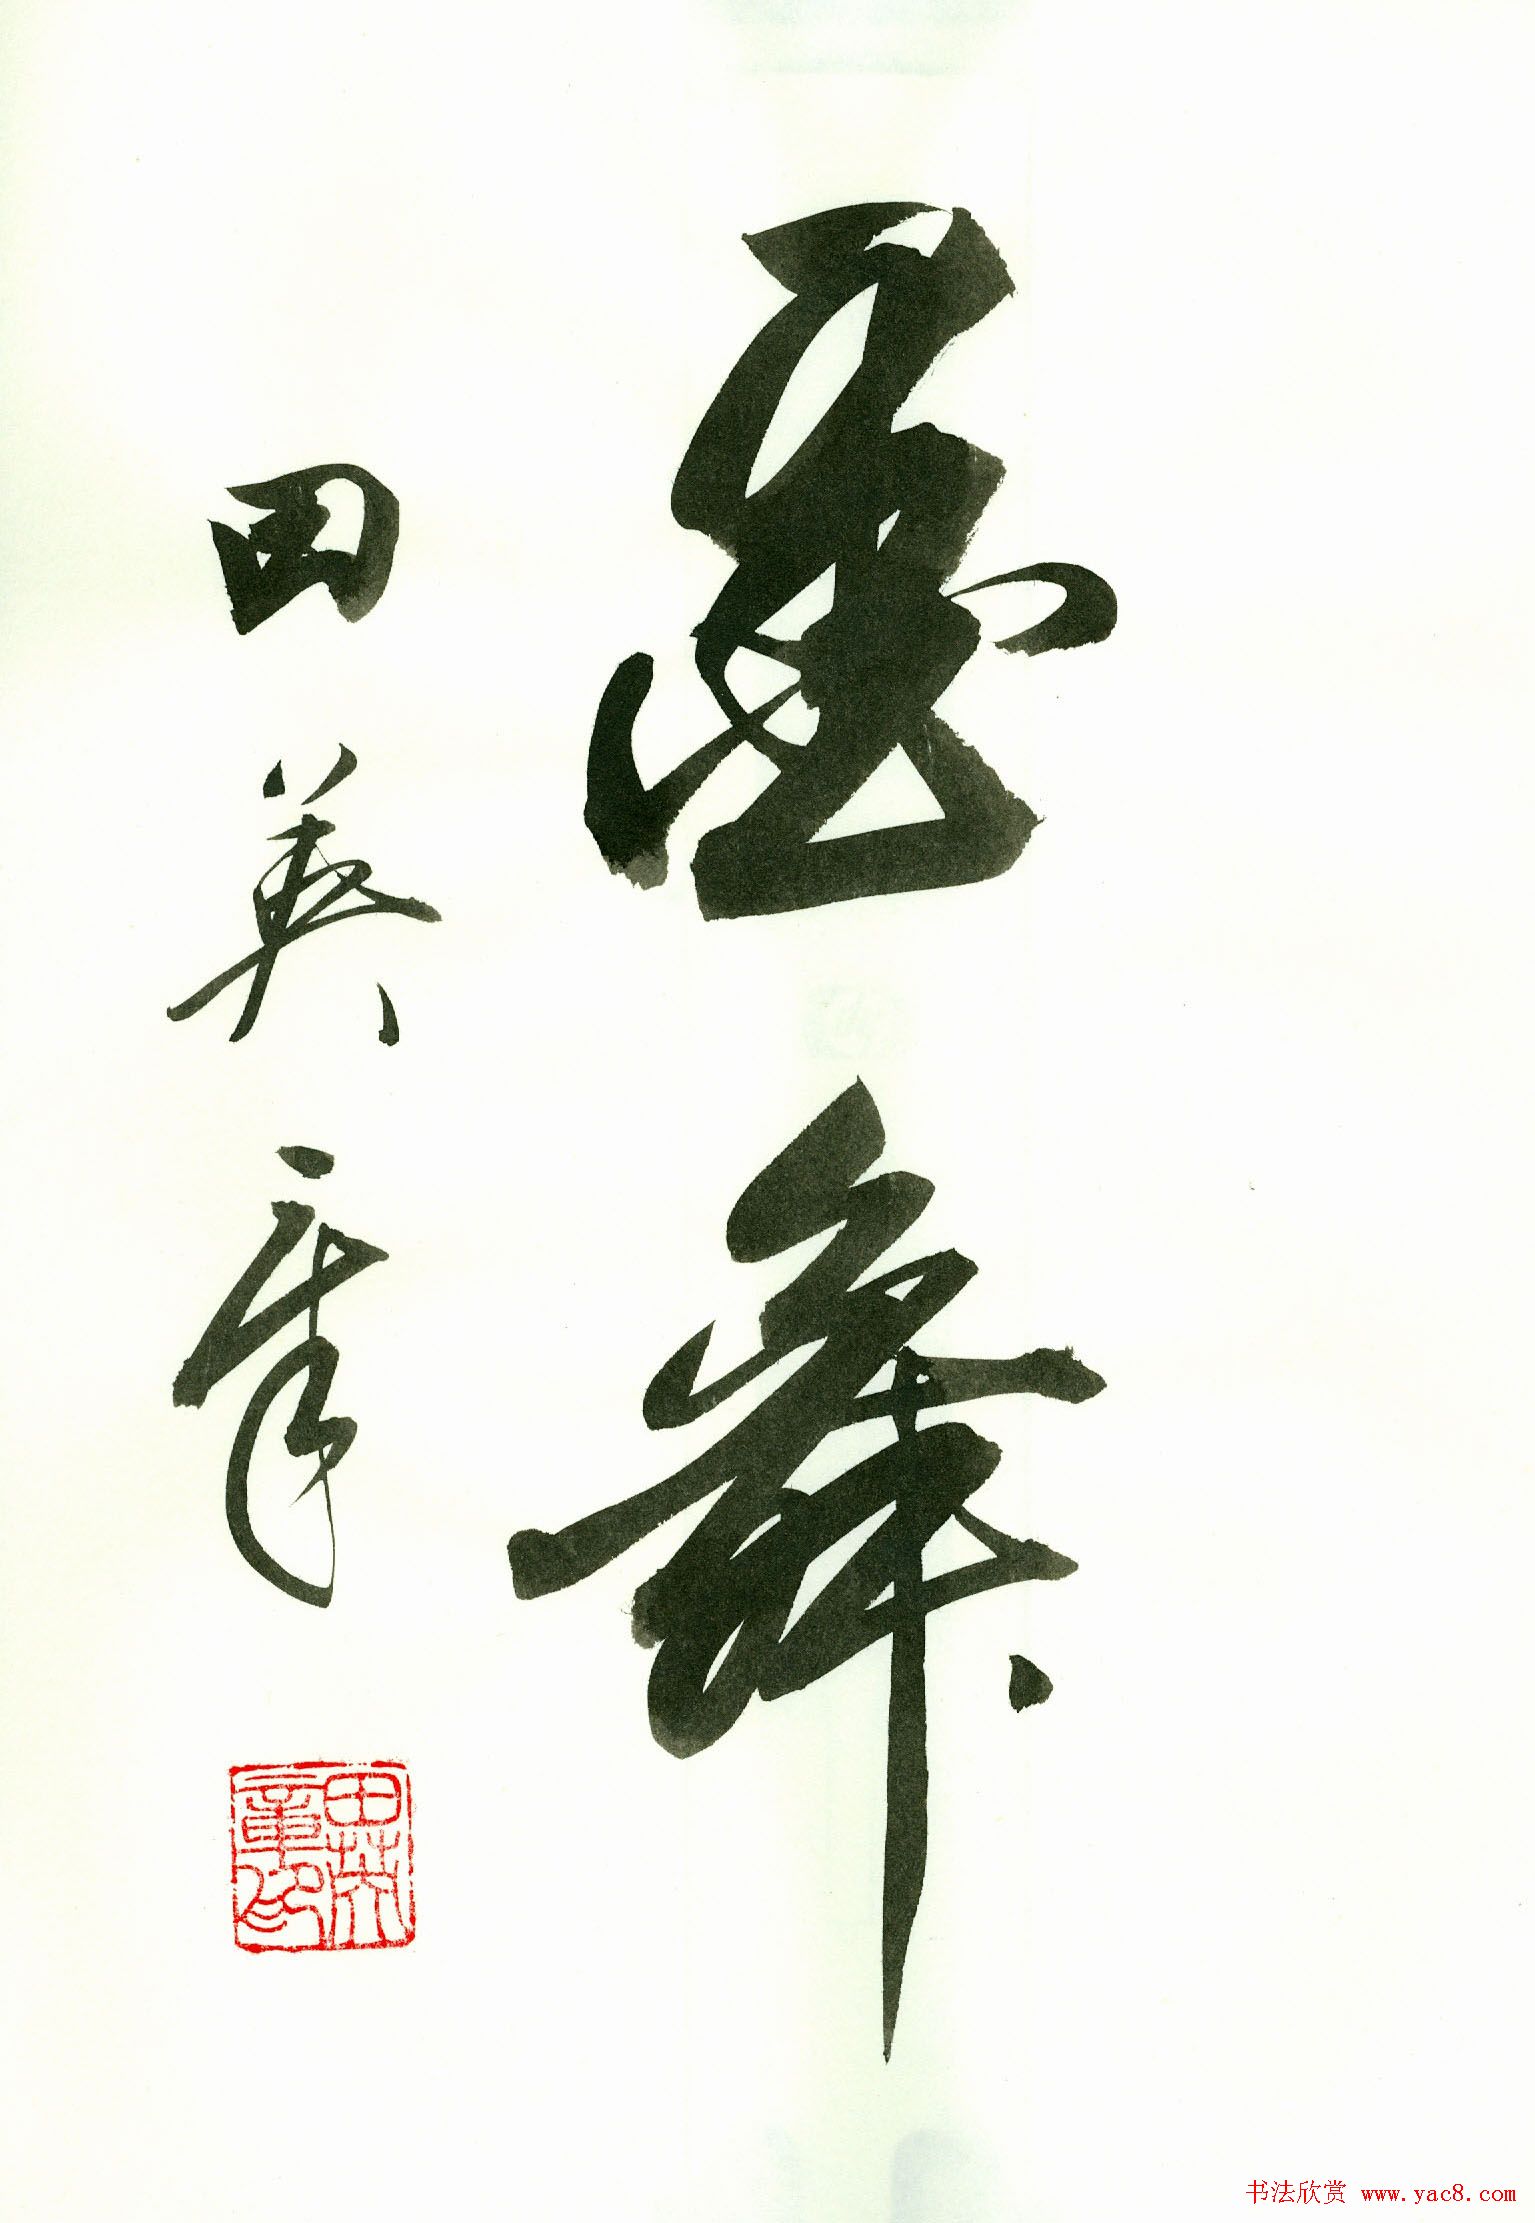 舞
田英章
田英章印
书法欣赏 www.yac8.com